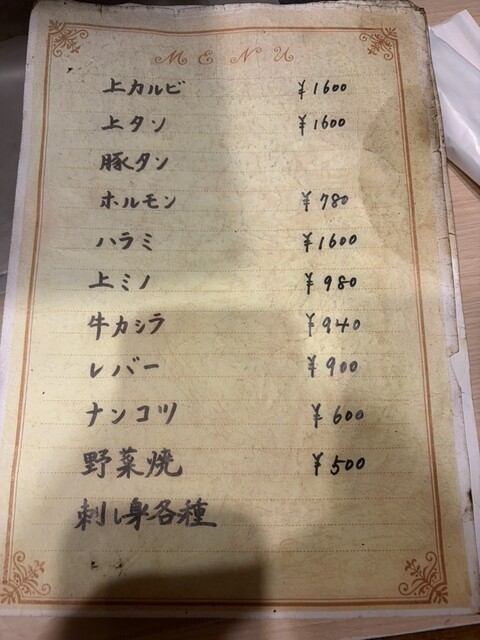 MENU
上カルビ ¥1600
上タン ¥1600
豚タン
ホルモン ¥780
ハラミ ¥1600
上ミノ ¥980
牛カシラ ¥940
レバー ¥900
ナンコツ ¥600
野菜焼 ¥500
刺し身各種